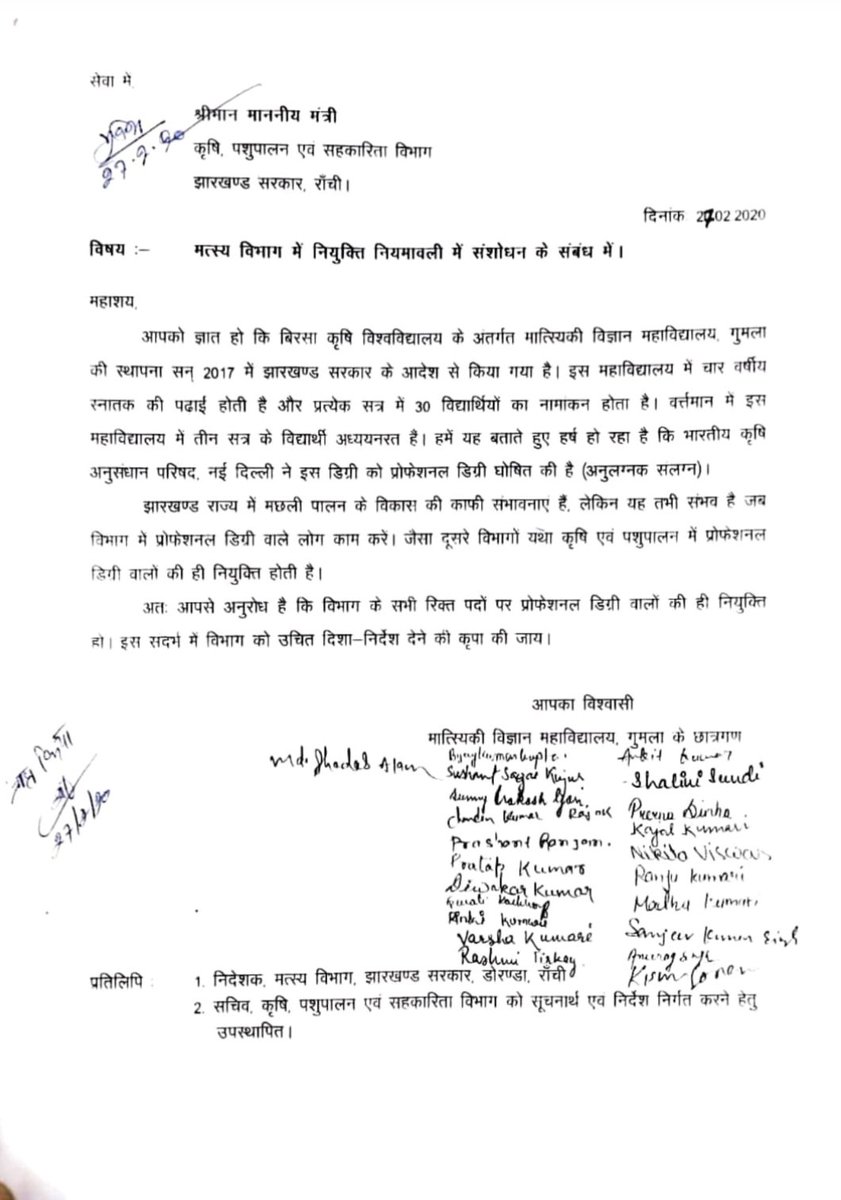 सेवा में,
श्रीमान माननीय मंत्री
कृषि, पशुपालन एवं सहकारिता विभाग
27.2.20
झारखण्ड सरकार, राँची।
दिनांक 27 02 2020
विषय :– मत्स्य विभाग में नियुक्ति नियमावली में संशोधन के संबंध में।
महाशय,
आपको ज्ञात हो कि बिरसा कृषि विश्वविद्यालय के अंतर्गत मात्स्यिकी विज्ञान महाविद्यालय, गुमला
की स्थापना सन् 2017 में झारखण्ड सरकार के आदेश से किया गया है। इस महाविद्यालय में चार वर्षीय
स्नातक की पढाई होती है और प्रत्येक सत्र में 30 विद्यार्थियों का नामांकन होता है। वर्त्तमान में इस
महाविद्यालय में तीन सत्र के विद्यार्थी अध्ययनरत हैं। हमें यह बताते हुए हर्ष हो रहा है कि भारतीय कृषि
अनुसंधान परिषद, नई दिल्ली ने इस डिग्री को प्रोफेशनल डिग्री घोषित की है (अनुलग्नक संलग्न)।
झारखण्ड राज्य में मछली पालन के विकास की काफी संभावनाएं हैं, लेकिन यह तभी संभव है जब
विभाग में प्रोफेशनल डिग्री वाले लोग काम करें। जैसा दूसरे विभागों यथा कृषि एवं पशुपालन में प्रोफेशनल
डिग्री वालों की ही नियुक्ति होती है।
अतः आपसे अनुरोध है कि विभाग के सभी रिक्त पदों पर प्रोफेशनल डिग्री वालों की ही नियुक्ति
हो। इस संदर्भ में विभाग को उचित दिशा–निर्देश देने की कृपा की जाय।
आपका विश्वासी
मात्स्यिकी विज्ञान महाविद्यालय, गुमला के छात्रगण
Md. Shadab Alam
Ankit Kumar
Sushant Sagar Kujur
Shalini Sundi
Sunny Prakash
Chandan Kumar Rajak
Prerna Sinha
Kajal Kumari
Prashant Ranjan.
Nikita Viscous
Pratap Kumar
Ranju Kumari
Diwakar Kumar
Madhu Kumari
Pinki Kumari
Varsha Kumari
Sanjeev Kumar Singh
Rashmi Tirkey
27/2/20
प्रतिलिपि : 1. निदेशक, मत्स्य विभाग, झारखण्ड सरकार, डोरण्डा, राँची
2. सचिव, कृषि, पशुपालन एवं सहकारिता विभाग को सूचनार्थ एवं निर्देश निर्गत करने हेतु
उपस्थापित।